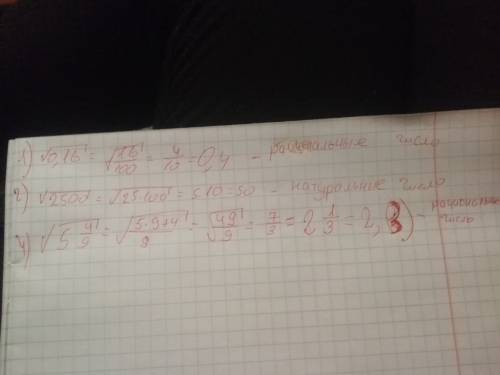 1) √0,16 = √16/100 = 4/10 = 0,4 - рациональные число
2) √2500 = √25·100 = 5·10 = 50 - натуральные число
4) √5 4/9 = √(5·9+4)/9 = √49/9 = 7/3 = 2 1/3 = 2,3) - рациональные число